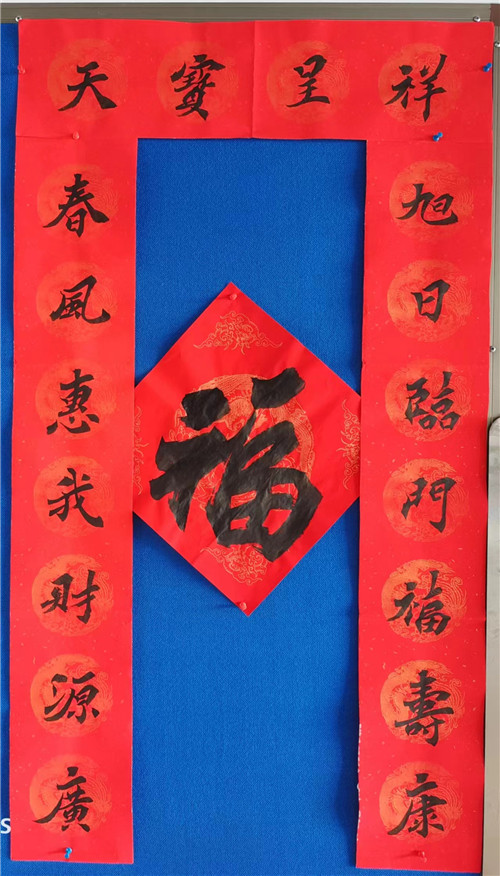 天寶呈祥
春風惠我財源廣
福
旭日臨門福壽康
S